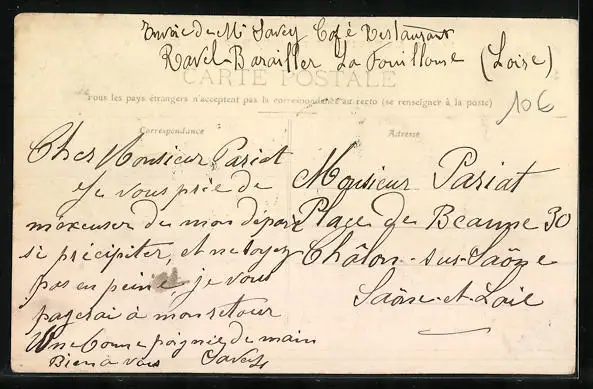 Envoie de Mr Savey Café Restaurant
Ravel Barailler La Fouillouse (Loire)
CARTE POSTALE
Tous les pays étrangers n'acceptent pas la correspondance au recto (se renseigner à la poste)
106
Correspondance
Cher Monsieur Pariat
Je vous prie de
m'excuser de mon départ
si précipiter, et ne soyez
pas en peine je vous
pagerai à mon retour
Une bonne poignie de main
Bien à vous Savey
Adresse
Monsieur Pariat
Place de Beaune 30
Châlon-sur-Saône
Saône-et-Loire